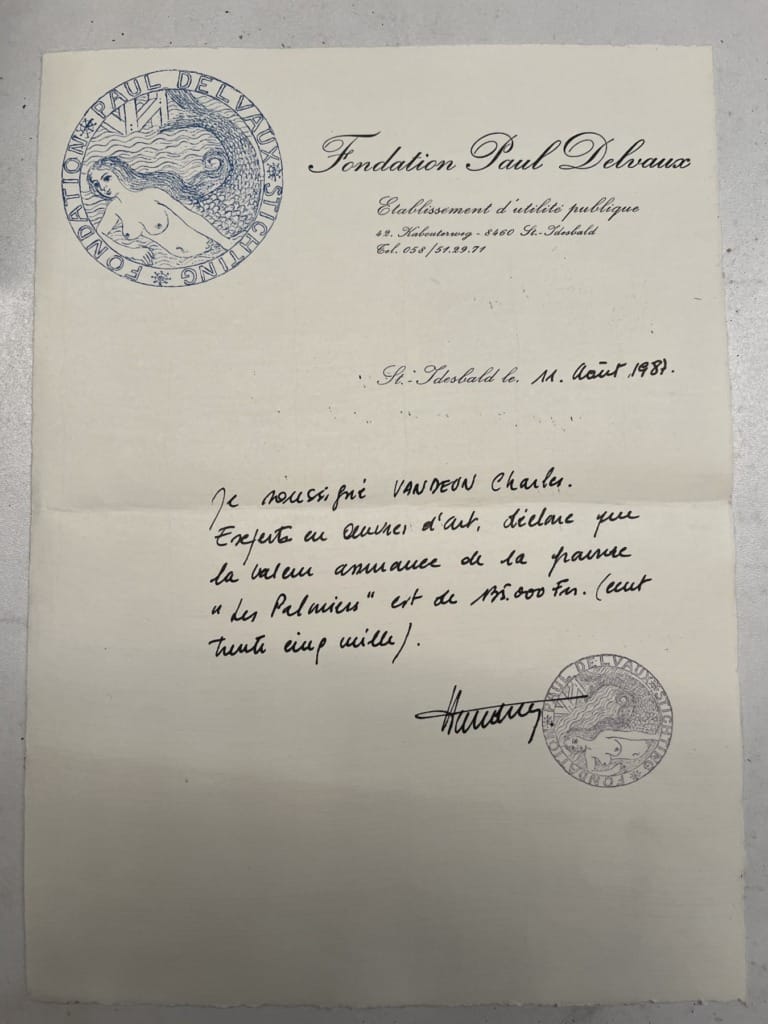 FONDATION * PAUL DELVAUX * STICHTING *
Fondation Paul Delvaux
Etablissement d'utilité publique
42. Kabouterweg - 8460 St.-Idesbald
Tel. 058/51.29.71
St.-Idesbald le. 11. Août 1987.
Je soussigné VANDEON Charles.
Experts en Oeuvres d'art, déclare que
la valeur assurance de la gravure
"Les Palmiers" est de 135.000 Frs. (cent
trente cinq mille).
FONDATION * PAUL DELVAUX * STICHTING *